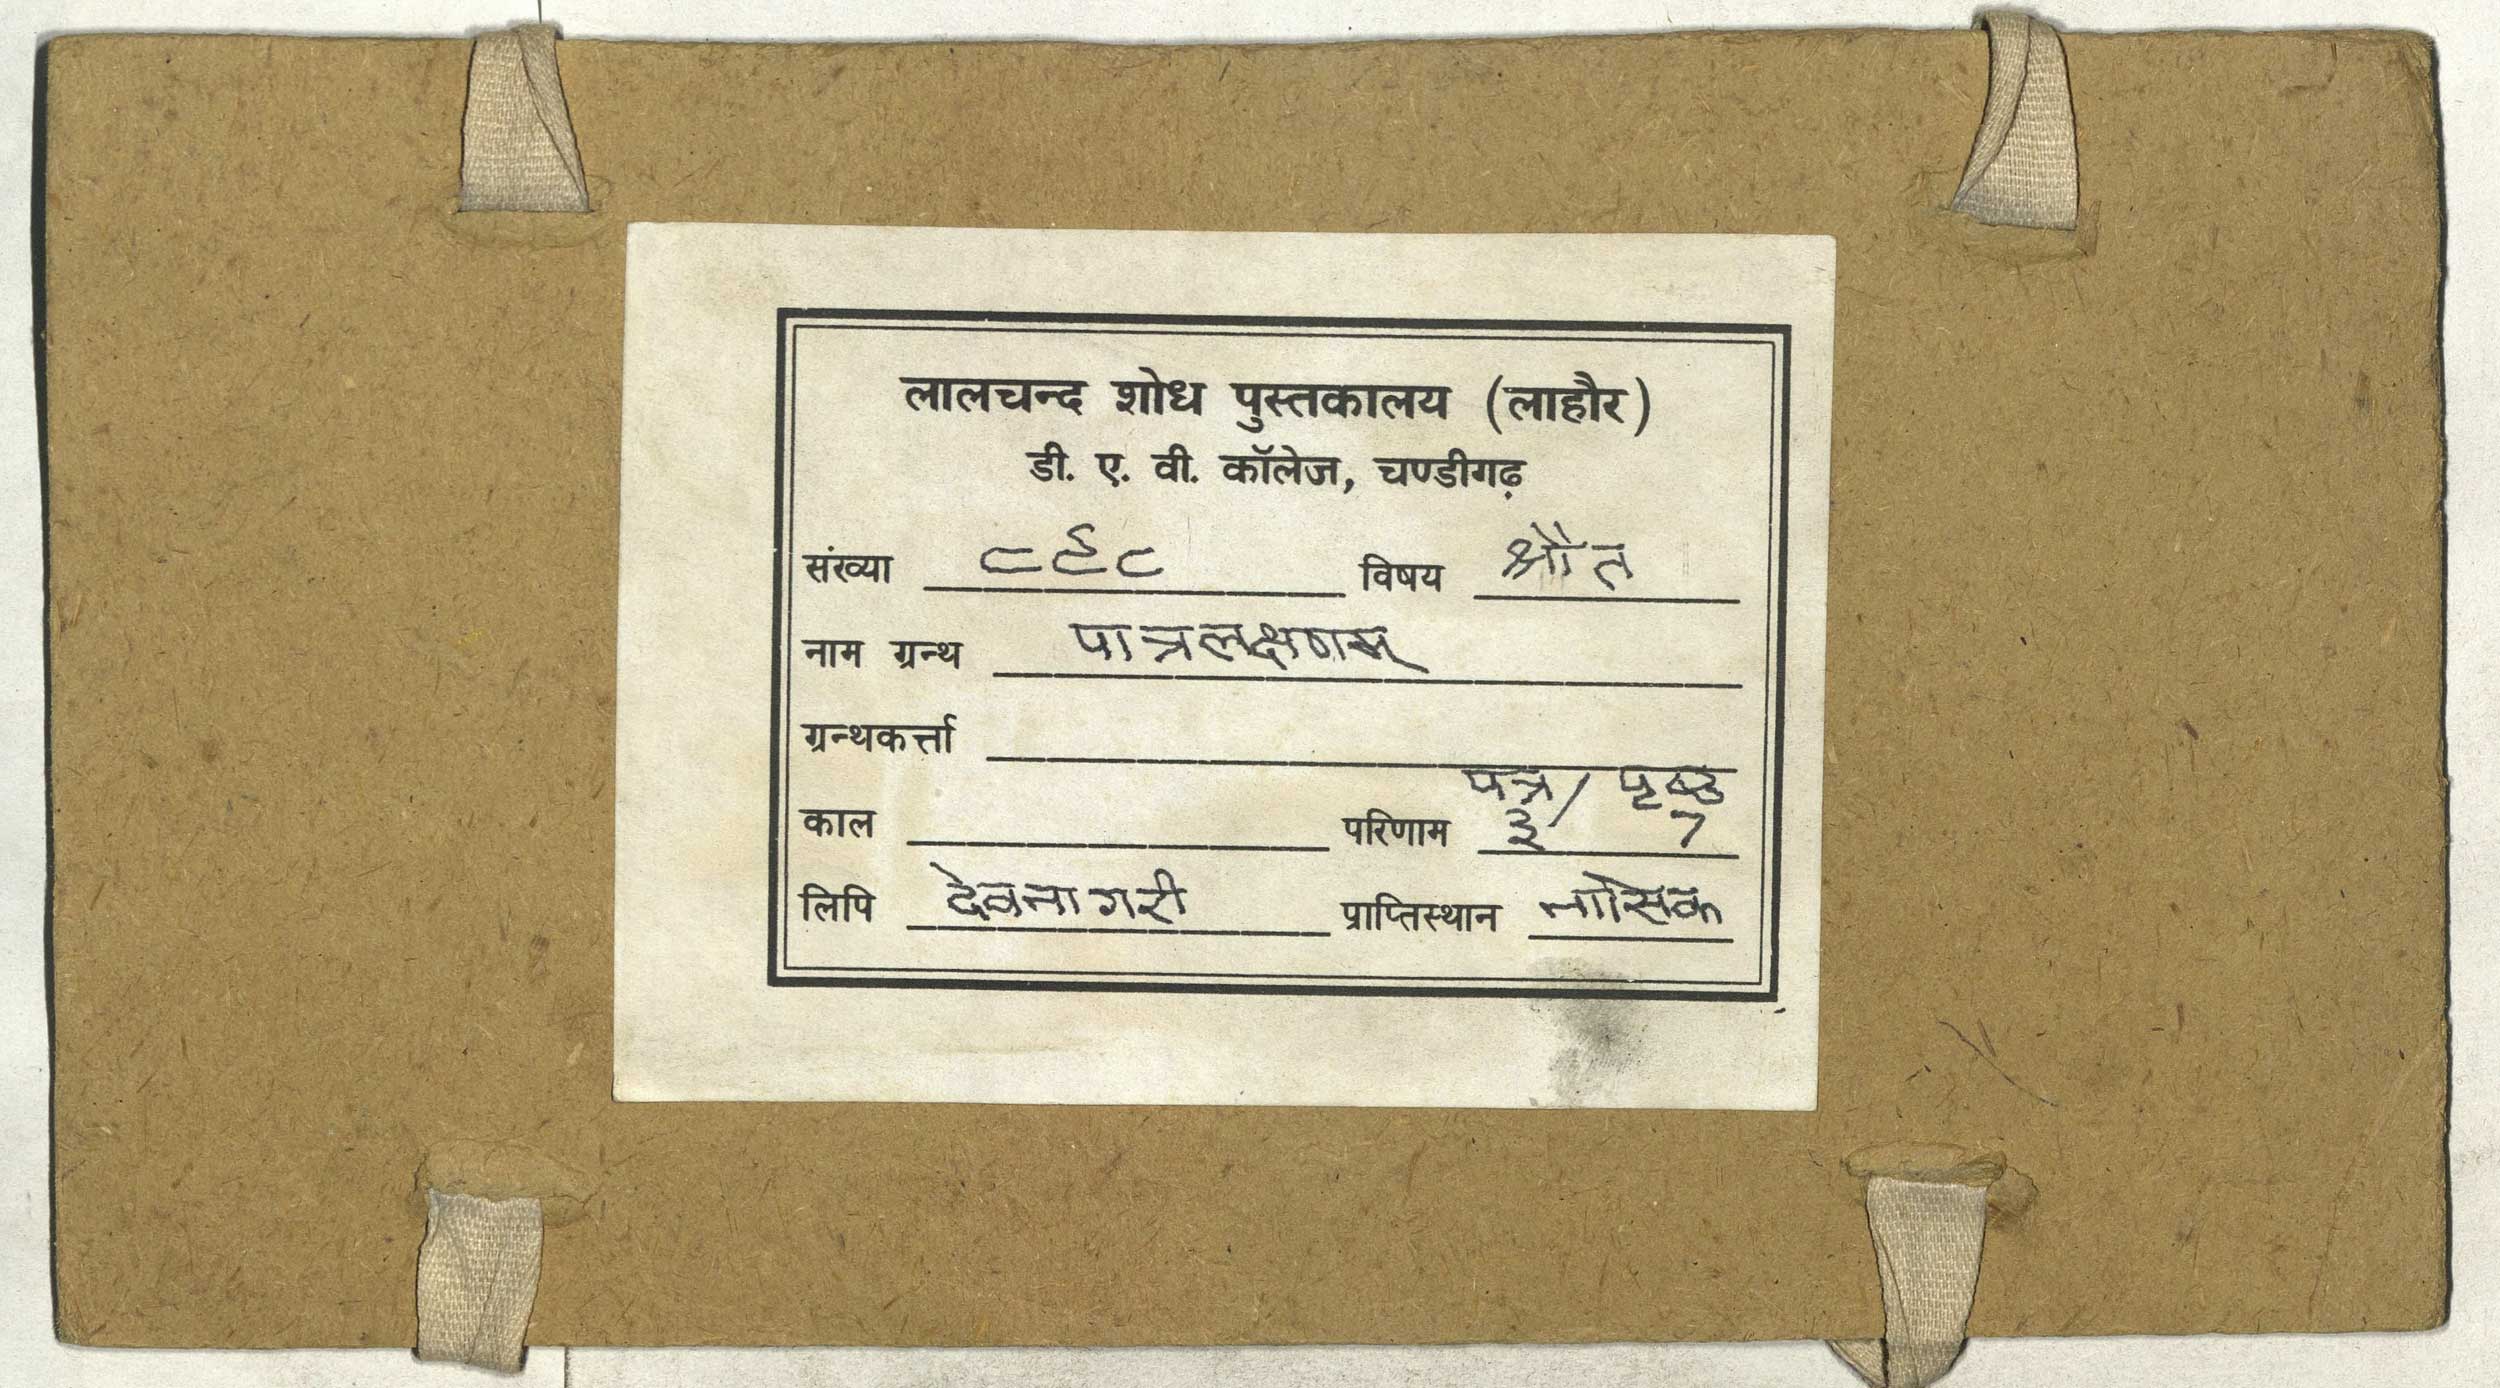 लालचन्द शोध पुस्तकालय (लाहौर)
डी. ए. वी. कॉलेज, चण्डीगढ़
संख्या ८९८ विषय श्रौत
नाम ग्रन्थ पात्रलक्षणम्
ग्रन्थकर्त्ता
पत्र / पृष्ठ
काल परिणाम ३ 7
लिपि देवनागरी प्राप्तिस्थान नासिक